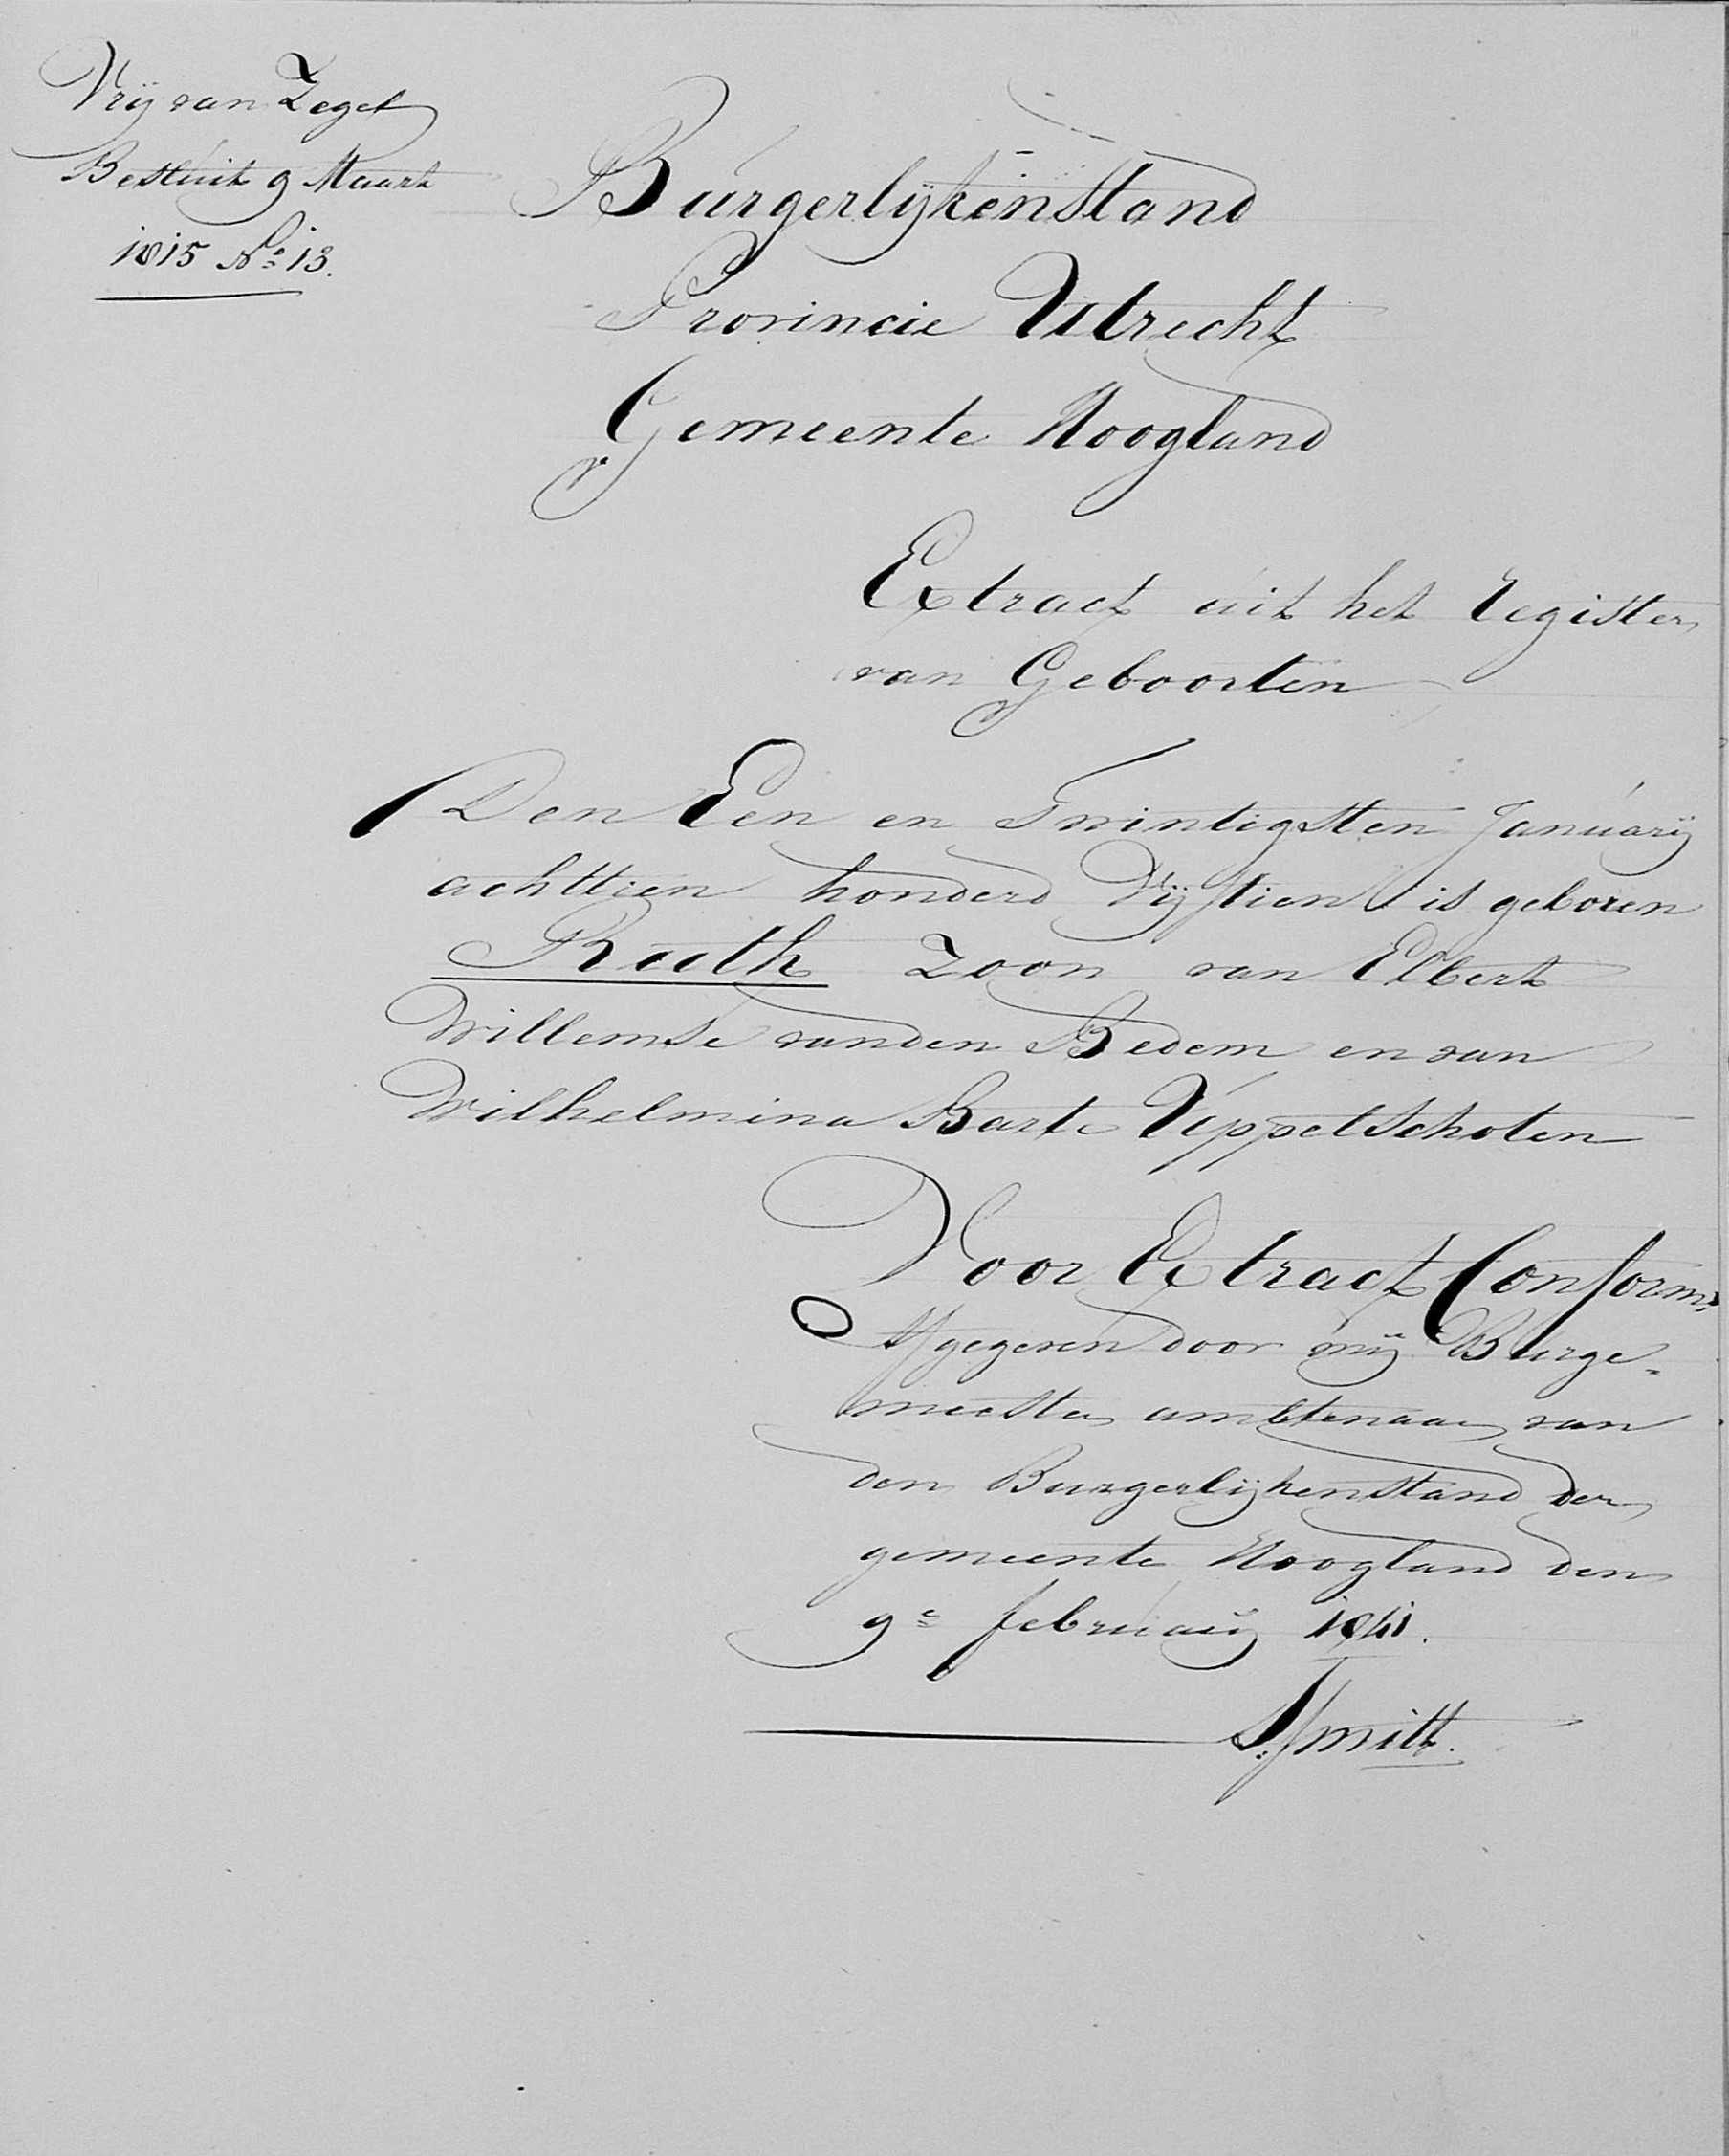 Vrij van Zegel
Besluit 9 Maart
1815 No 13.
Burgerlijkenstand
Provincie Utrecht
Gemeente Hoogland
Extract uit het Register
van Geboorten
Den Een en Twintigsten Januarij
achttien honderd Vijftien is geboren
Ruth Zoon van Elbert
Willemse vanden Bedem en van
Wilhelmina Barte Uppelschoten
Voor Extract Conform,
Afgegeven door mij Burge=
meester ambtenaar van
den Burgerlijkenstand der
gemeente Hoogland den
9e februarij 1841.
S. Smitt.